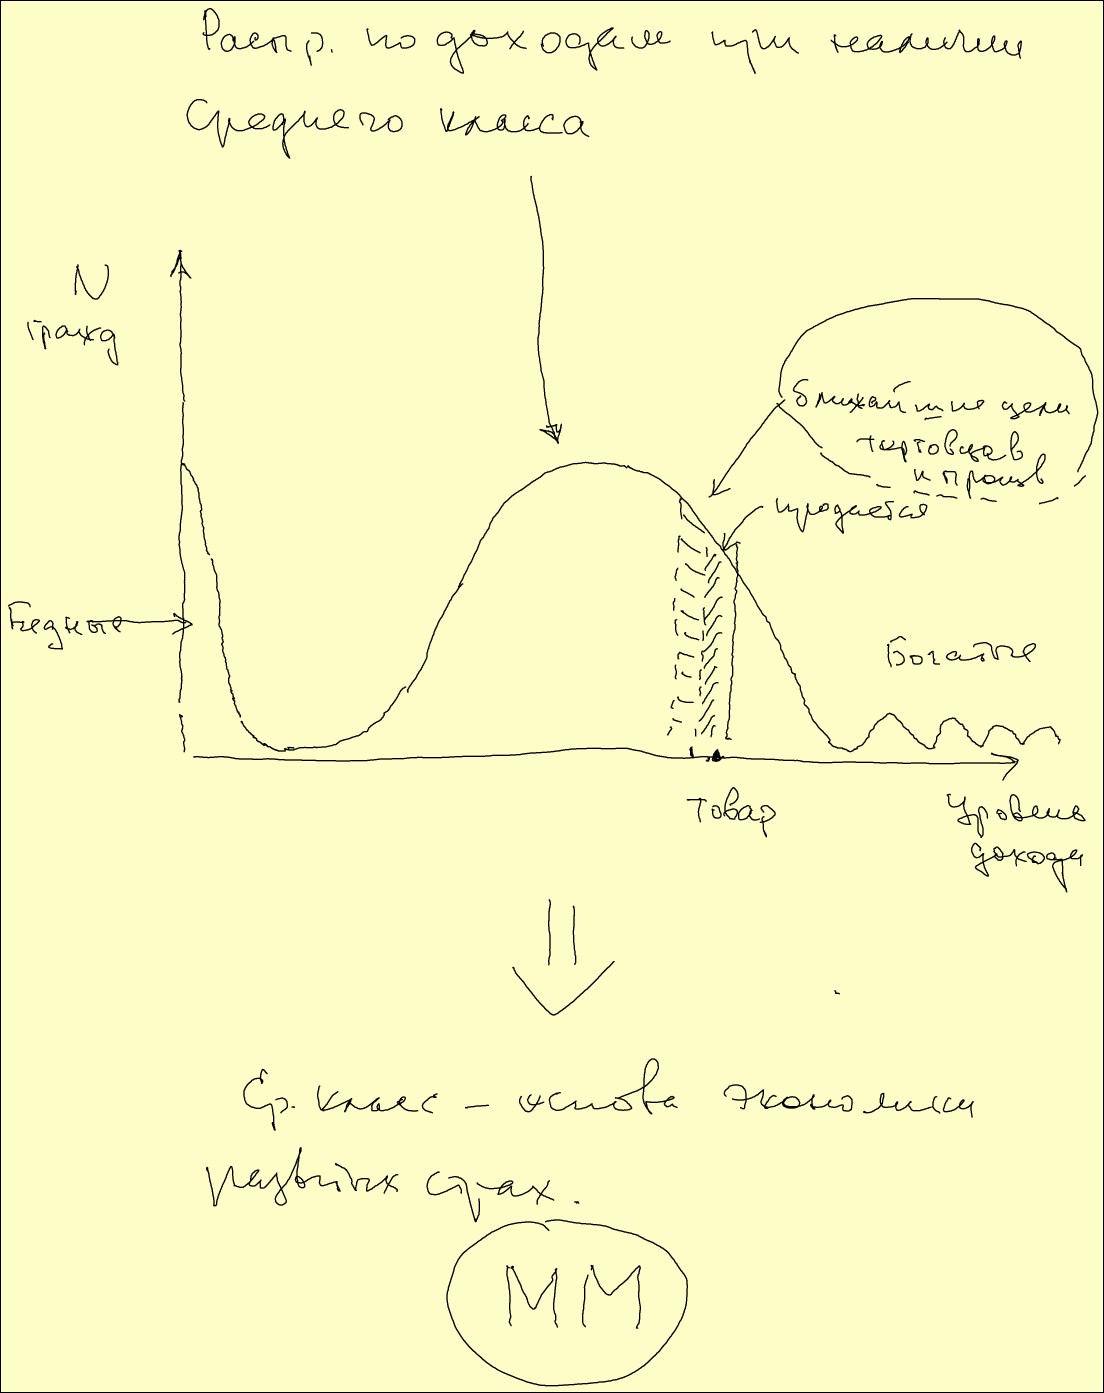 Распр. по доходам при наличии
Среднего класса
N
гражд
ближайшие цели
торговцав
и произв
продается
Бедные
Богатые
товар
Уровень
дохода
Ср. класс – основа экономики
развитых стран.
ММ